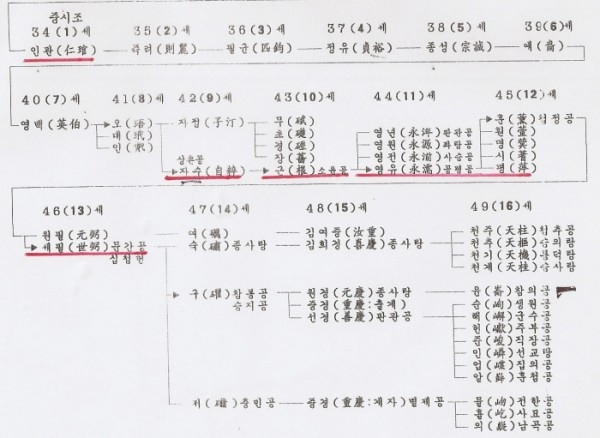 중시조
34(1)세 35(2)세 36(3)세 37(4)세 38(5)세 39(6)세
인관(仁琯) 주려(則麗) 필균(匹鈞) 정유(貞裕) 종성(宗誠) 예(裔)
40(7)세 41(8)세 42(9)세 43(10)세 44(11)세 45(12)세
영백(英伯) 오(珸) 자정(子汀) 무(碔) 훈(薰)첨정공
대(玳) 초(礎) 영년(永年)판관공 원(萱)
인 경(磬) 영원(永源)좌랑공 명(蓂)
상윤공 장(蕃) 영전(永湔)사승공 시(蓍)
자수(自粹) 근(根)소윤공 영유(永濡)공평공 평(萍)
46(13)세 47(14)세 48(15)세 49(16)세
원필(元弼) 여(礪) 김여중(汝重) 천주(天柱)첨추공
세필(世弼)문간공 숙(礵)종사랑 김희경(喜慶)종사랑 천추(天樞)습의랑
십청헌 천기(天機)통덕랑
천계(天桂)승사랑
구(䂂)참봉공 원경(元慶)종사랑 윤(崙)참의공
승지공 중경(重慶:출계) 순(峋)생원공
선경(善慶)판관공 해(嶰)군수공
헌(巘)주부공
준(峻)직장공
인(嶙)선교랑
업(嶪)집의공
암 훈첨공
저(䃴)증민공 중경(重慶:계자)별제공 물(岉)전한공
흘(屹)사묘공
의(嶷)남곡공